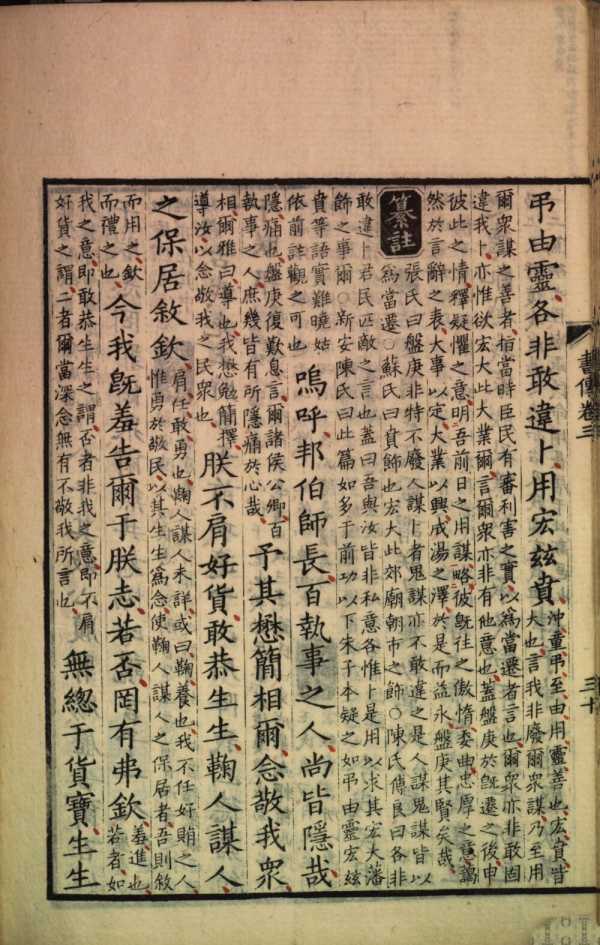 弔由靈各非敢違卜用宏兹賁
沖童弔至由用靈善也宏賁皆
大也言我非廢爾衆謀乃至用
爾衆謀之善者指當時臣民有審利害之實以爲當遷者言也爾衆亦非敢固
違我卜亦惟欲宏大此大業爾言爾衆亦非有他意也蓋盤庚於旣遷之後申
彼此之情釋疑懼之意明吾前日之用謀略彼旣往之傲惰委曲忠厚之意藹
然於言辭之表大事以定大業以興成湯之澤於是而益永盤庚其賢矣哉
纂註
張氏曰盤庚非特不廢人謀卜者鬼謀亦不敢違之是人謀鬼謀皆以
爲當遷○蘇氏曰賁飾也宏大此郊廟朝市之飾○陳氏傅良曰各非
敢違卜君民匹敵之言也蓋曰吾與汝皆非私意各惟卜是用以求其宏大藩
飾之事爾○新安陳氏曰此篇如多于前功以下朱子本疑之如弔由靈宏兹
賁等語實難曉姑
依前註觀之可也
嗚呼邦伯師長百執事之人尚皆隱哉
隱痛也盤庚復歎息言爾諸侯公卿百
執事之人庶幾皆有所隱痛於心哉
予其懋簡相爾念敬我衆
相爾雅曰導也我懋勉簡擇
導汝以念敬我之民衆也
朕不肩好貨敢恭生生鞠人謀人
之保居敘欽
肩任敢勇也鞠人謀人未詳或曰鞠養也我不任好賄之人
惟勇於敬民以其生生爲念使鞠人謀人之保居者吾則敘
而用之欽
而禮之也
今我旣羞告爾于朕志若否罔有弗欽
羞進也
若者如
我之意即敢恭生生之謂否者非我之意即不肩
好貨之謂二者爾當深念無有不敬我所言也
無總于貨寶生生
書傳卷三
三十